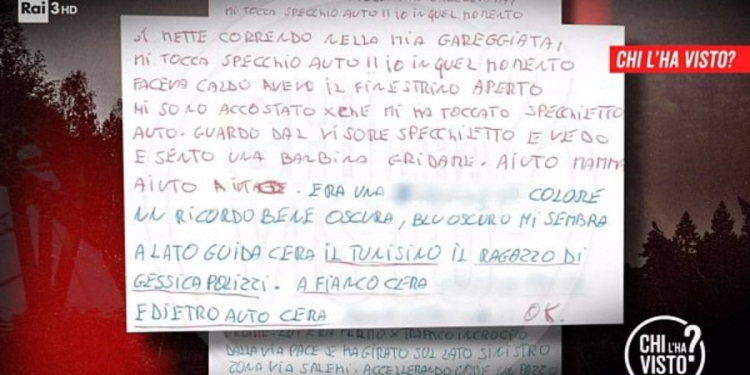 Rai 3HD
MI TOCCA SPECCHIO AUTO !! IO IN QUEL MOMENTO
SI METTE CORRENDO NELLO MIA GAREGGIATA,
MI TOCCA SPECCHIO AUTO !! IO IN QUEL MOMENTO
FACEVA CALDO AVEVO IL FINESTRINO APERTO
MI SONO ACCOSTATO XCHE MI HA TOCCATO SPECCHIETTO
AUTO. GUARDO DAL VISORE SPECCHIETTO E VEDO
E SENTO UNA BAMBINA GRIDARE. AIUTO MAMMA
AIUTO - ERA UNA COLORE
UN RICORDO BENE OSCURA, BLU OSCURO MI SEMBRA
A LATO GUIDA CERA IL TUNISINO IL RAGAZZO DI
GESSICA POLIZZI. A FIANCO CERA
E DIETRO AUTO CERA OK.
CHI L'HA VISTO?
DALLA VIA PACE SI HA GIRATO SUL LATO SINISTRO
ZONA VIA SALEMI. ACCELLERANDO COME UN PAZZO
CHI L'HA VISTO?